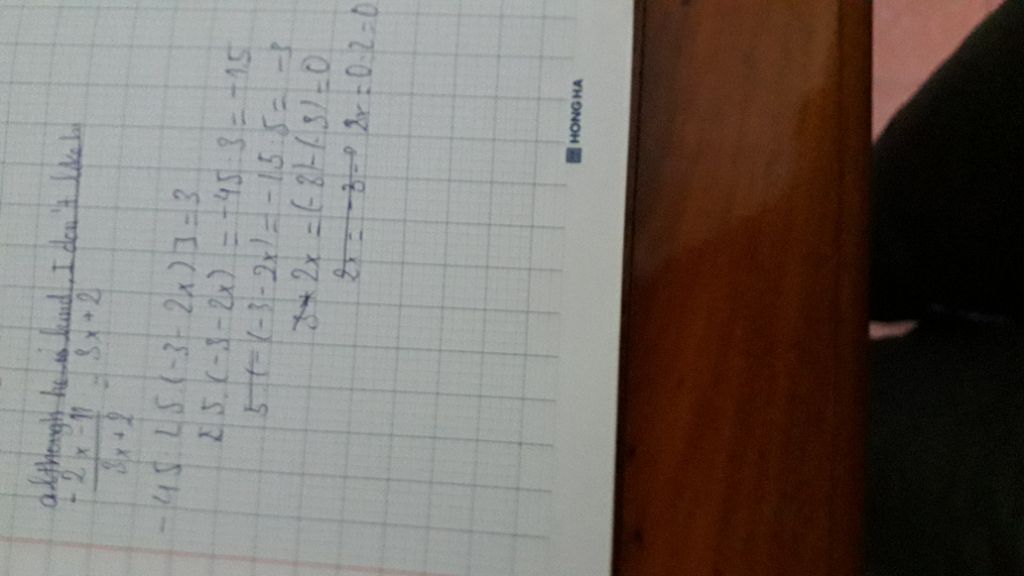 although he is hand. I don't
- 2x - 11
3x + 2
= 3x + 2
- 45 : [5.(-3 - 2x)] = 3
[5.(-3 - 2x) = -45 : 3 = -15
5 (= (-3 - 2x) = -15 : 5 = -3
2x = (-3) - (-3) = 0
2x = -3 = 2x = 0 : 2 = 0
HONG HA